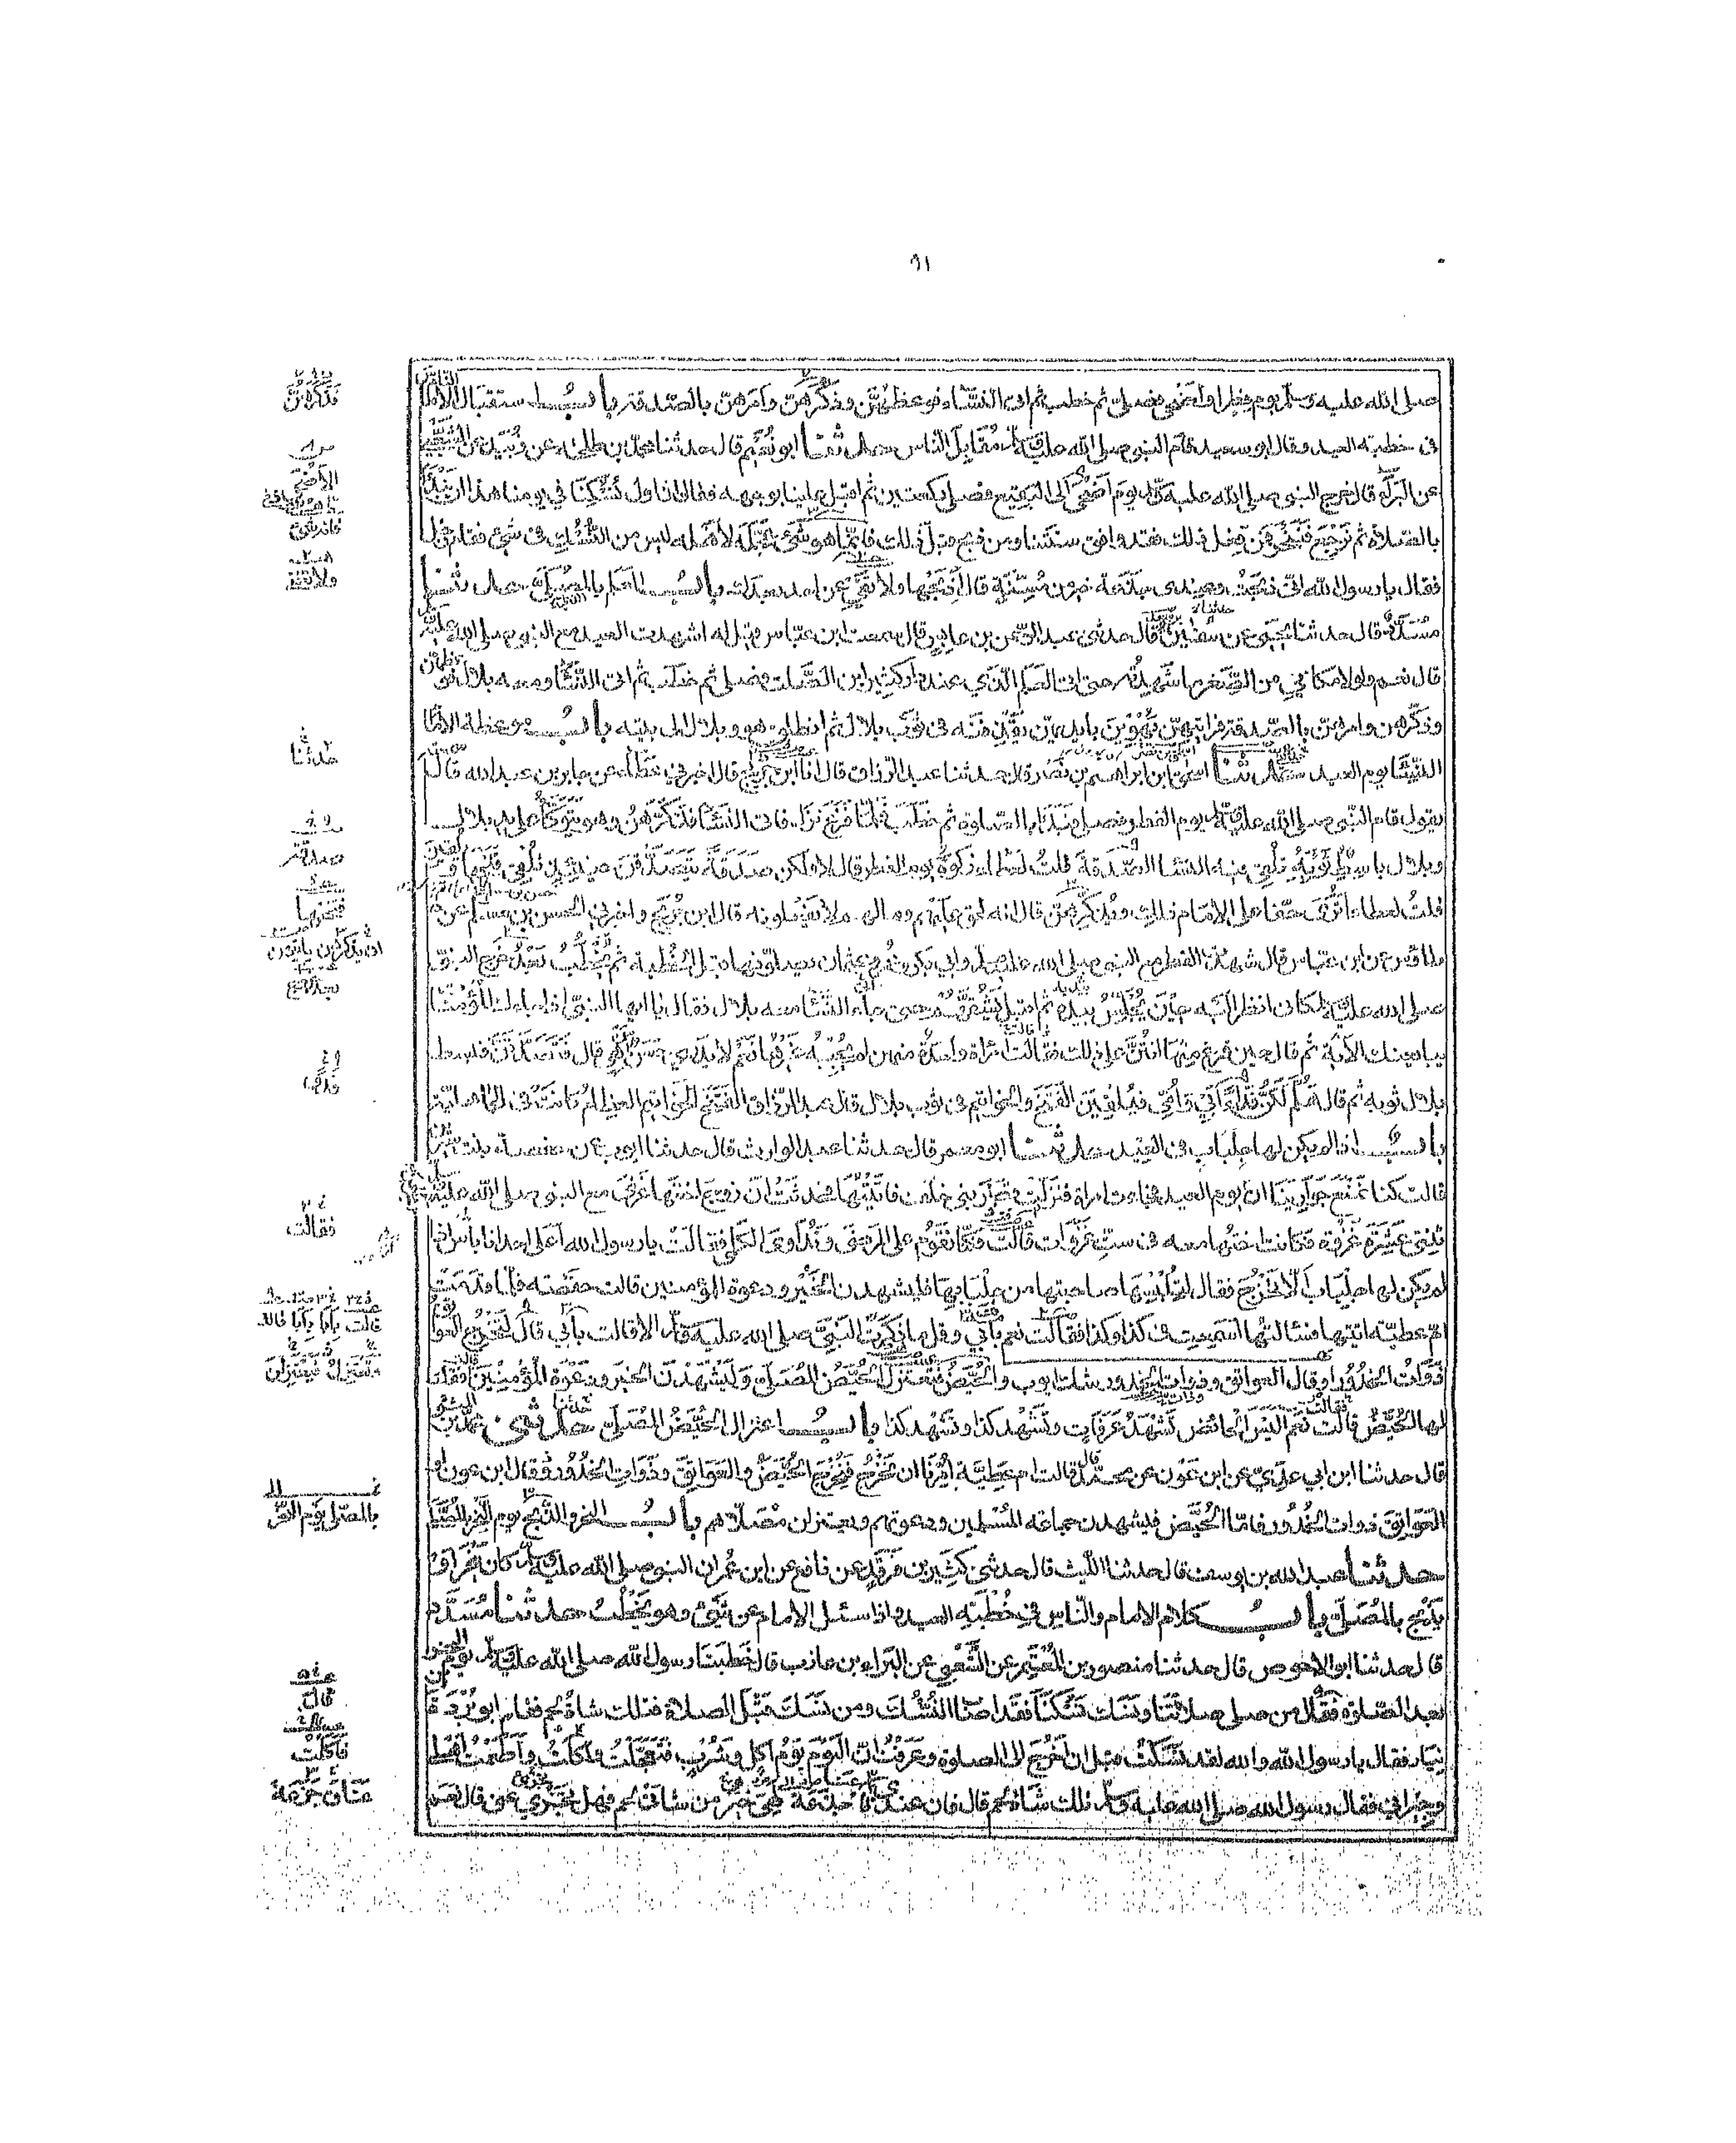 ٩١
صلى الله عليه وسلم يوم فطر او اضحى فصلى ثم خطب ثم اتى النساء فوعظهن وذكرهن وامرهن بالصدقة باب استقبال الامام الناس
فى خطبة العيد وقال ابو سعيد قام النبى صلى الله عليه وسلم مقابل الناس حدثنا ابو نعيم قال حدثنا محمد بن طلحة عن زبيد عن الشعبي
عن البراء قال خرج النبى صلى الله عليه وسلم يوم اضحى الى البقيع فصلى ركعتين ثم اقبل علينا بوجهه فقال ان اول نسكنا في يومنا هذا ان نبدأ
بالصلاة ثم نرجع فننحر فمن فعل ذلك فقد وافق سنتنا ومن ذبح قبل ذلك فانما هو شئ عجله لاهله ليس من النسك فى شئ فقام رجل
فقال يا رسول الله انى ذبحت وعندى جذعة خير من مسنة قال اذبحها ولا تفي عن احد بعدك باب العلم بالمصلى حدثنا
مسدد قال حدثنا يحيى عن سفيان قال حدثنى عبد الرحمن بن عابس قال سمعت ابن عباس قيل له اشهدت العيد مع النبى صلى الله عليه وسلم
قال نعم ولولا مكاني من الصغر ما شهدته حتى اتى العلم الذي عند دار كثير ابن الصلت فصلى ثم خطب ثم اتى النساء ومعه بلال فوعظهن
وذكرهن وامرهن بالصدقة فرايتهن يهوين بايديهن يقذفنه فى ثوب بلال ثم انطلق هو وبلال الى بيته باب موعظة الامام
النساء يوم العيد حدثنا اسحق ابن ابراهيم بن نصر قال حدثنا عبد الرزاق قال انا ابن جريج قال اخبرني عطاء عن جابر بن عبد الله قال
يقول قام النبى صلى الله عليه وسلم يوم الفطر فصلى فبدأ بالصلوة ثم خطب فلما فرغ نزل فاتى النساء فذكرهن وهو يتوكأ على يد بلال
وبلال باسط ثوبه تلقي فيه النساء الصدقة قلت لعطاء زكوة يوم الفطر قال لا ولكن صدقة يتصدقن حينئذ تلقى فتخها ويلقين
قلت لعطاء اترى حقا على الامام ذلك ويذكرهن قال انه لحق عليهم وما لهم لا يفعلونه قال ابن جريج واخبرني الحسن بن مسلم عن
طاؤس عن ابن عباس قال شهدت الفطر مع النبى صلى الله عليه وسلم وابي بكر وعمر وعثمان يصلونها قبل الخطبة ثم يخطب بعد خرج النبى
صلى الله عليه وسلم كانى انظر اليه حين يجلس بيده ثم اقبل يشقهم حتى جاء النساء معه بلال فقال يا ايها النبى اذا جاءك المؤمنات
يبايعنك الآية ثم قال حين فرغ منها انتن على ذلك فقالت امرأة واحدة منهن لم يجبه غيرها نعم لا يدري حسن من هي قال فتصدقن فبسط
بلال ثوبه ثم قال هلم لكن فداء ابي وامي فيلقين الفتخ والخواتيم فى ثوب بلال قال عبد الرزاق الفتخ الخواتيم العظام كانت فى الجاهلية
باب اذا لم يكن لها جلباب فى العيد حدثنا ابو معمر قال حدثنا عبد الوارث قال حدثنا ايوب عن حفصة بنت سيرين
قالت كنا نمنع جوارينا ان يخرجن يوم العيد فجاءت امراة فنزلت قصر بنى خلف فاتيتها فحدثت ان زوج اختها غزى مع النبى صلى الله عليه وسلم
ثنتى عشرة غزوة فكانت اختها معه فى ست غزوات قالت فكنا نقوم على المرضى ونداوى الكلمى فقالت يا رسول الله اعلى احدانا باس اذا
لم يكن لها جلباب الا تخرج فقال لتلبسها صاحبتها من جلبابها فليشهدن الخير ودعوة المؤمنين قالت حفصة فلما قدمت
ام عطية اتيتها فسالتها اسمعت فى كذا وكذا فقالت نعم بابي وقل ما ذكرت النبي صلى الله عليه وسلم الا قالت بابي قال لتخرج العواتق
ذوات الخدور او قال العواتق وذوات الخدور شك ايوب والحيض فتعتزل الحيض المصلى وليشهدن الخير ودعوة المؤمنين فقلت
لها الحيض قالت نعم اليس الحائض تشهد عرفات وتشهد كذا وتشهد كذا باب اعتزال الحيض المصلى حدثنى محمد بن
قال حدثنا ابن ابي عدي عن ابن عون عن محمد قال قالت ام عطية امرنا ان نخرج فنخرج الحيض والعواتق وذوات الخدور وقال ابن عون او
العواتق ذوات الخدور فاما الحيض فيشهدن جماعة المسلمين ودعوتهم ويعتزلن مصلاهم باب النحر والذبح يوم النحر بالمصلى
حدثنا عبد الله بن يوسف قال حدثنا الليث قال حدثني كثير بن فرقد عن نافع عن ابن عمر ان النبى صلى الله عليه وسلم كان ينحر او
يذبح بالمصلى باب كلام الامام والناس في خطبة العيد واذا سئل الامام عن شئ وهو يخطب حدثنا مسدد
قال حدثنا ابو الاحوص قال حدثنا منصور بن المعتمر عن الشعبي عن البراء بن عازب قال خطبنا رسول الله صلى الله عليه وسلم يوم النحر
بعد الصلوة فقال من صلى صلاتنا ونسك نسكنا فقد اصاب النسك ومن نسك قبل الصلاة فتلك شاة لحم فقام ابو بردة
نيار فقال يا رسول الله والله لقد نسكت قبل ان اخرج الى الصلوة وعرفت ان اليوم يوم اكل وشرب فتعجلت واكلت واطعمت اهلى
وجيراني فقال رسول الله صلى الله عليه وسلم تلك شاة لحم قال فان عندى جذعة هي خير من شاتي لحم فهل تجزي عنى قال نعم
الاضحى
حدثنا
فقالت
بالمصلى يوم النحر
قال
فاكلت
عناق جذعة